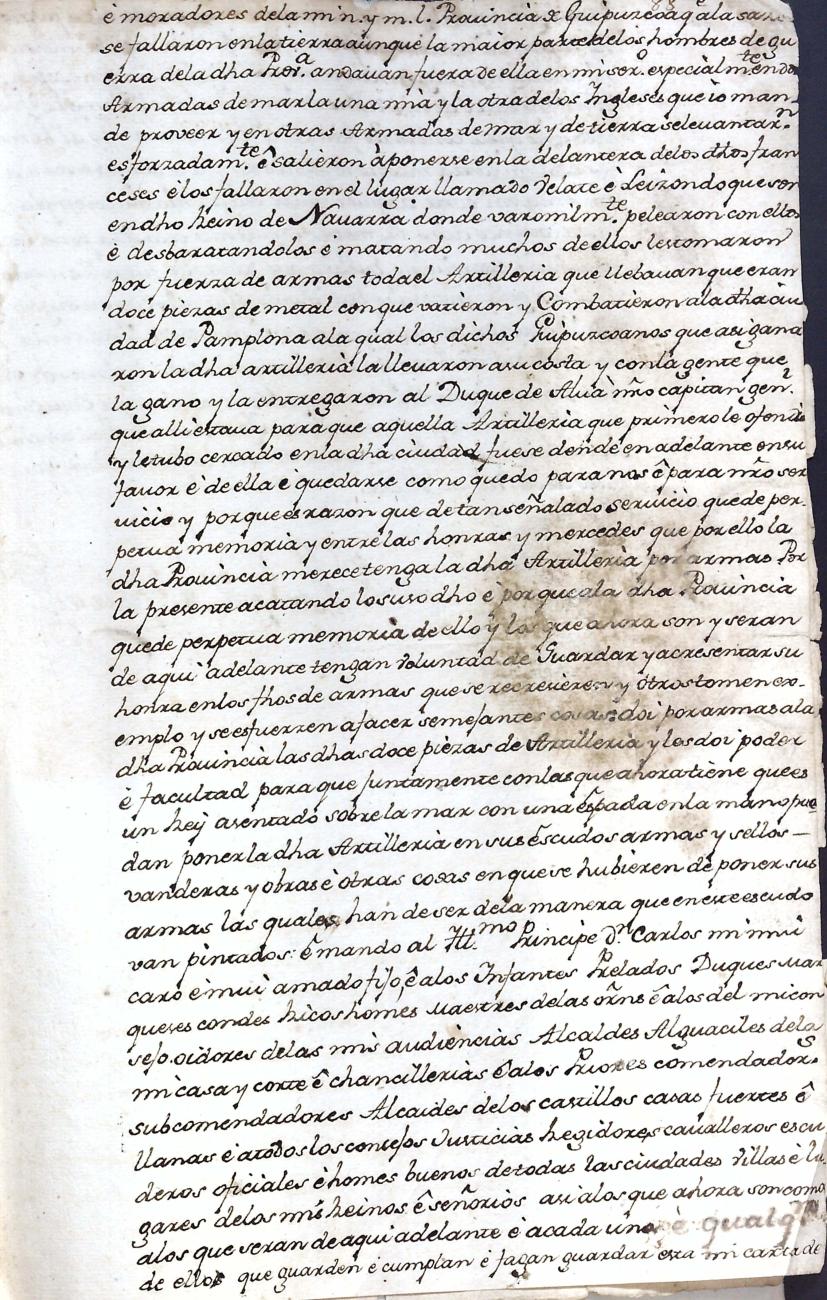 é moradores dela mi n. y m. l. Provincia de Guipuzcoa q.e ala sazon
se fallaron en la tierra aunque la maior parte delos hombres de gu
erra dela dha Prov.a andauan fuera de ella en mi ser.o especialm.te en dos
Armadas de mar la una mia y la otra delos Ingleses que io man
de proveer y en otras Armadas de mar y de tierra se levantar.n
esforzadam.te ê salieron à ponerse en la delantera delos dhos fran
ceses è los fallaron en el lugar llamado Velate è Leizondo que son
en dho Reino de Nauarra donde varonilm.te pelearon con ellos
è desbaratandolos è matando muchos de ellos les tomaron
por fuerza de armas toda el Artilleria que llebauan que eran
doce piezas de metal con que vatieron y Combatieron ala dha ciu
dad de Pamplona ala qual los dichos Guipuzcoanos que asi gana
ron la dha artilleria la llevaron asu costa y con la gente que
la gano y la entregaron al Duque de Alua nr̃o capitan gen.l
que alli estaua para que aquella Artilleria que primero le ofendio
y le tubo cercado en la dha ciudad fuese dende en adelante en su
favor è de ella è quedarse como quedo para nos ê para nr̃o ser
vicio y porque es razon que de tan señalado servicio quede per-
petua memoria y entre las honras y mercedes que por ello la
dha Prouincia merece tenga la dha Artilleria por armas Por
la presente acatando lo suso dho è porque ala dha Prouincia
quede perpetua memoria de ello y los que ahora son y seran
de aqui adelante tengan voluntad de Guardar y acresentar su
honra en los fhos de armas que se recrecieren y otros tomen ex-
emplo y se esfuerzen a facer semejantes cosas: doi por armas ala
dha Prouincia las dhas doce piezas de Artilleria y les doi poder
è facultad para que juntamente con las que ahora tiene que es
un Rey asentado sobre la mar con una espada en la mano pue
dan poner la dha Artilleria en sus escudos armas y sellos —
vanderas y obras è otras cosas en que se hubieren de poner sus
armas las quales han de ser dela manera que en este escudo
van pintados: ê mando al Ill.mo Principe D.n Carlos mi mui
caro è mui amado fijo, ê alos Infantes Prelados Duques Mar
queses condes Ricos homes Maestres delas or̃ns ê alos del mi con
sejo. oidores delas mis audiencias Alcaldes Alguaciles dela
mi casa y corte ê chancillerias ê alos Priores comendador.s
subcomendadores Alcaides delos castillos casas fuertes ê
llanas è a todos los concejos Justicias Regidores caualleros escu
deros oficiales è homes buenos de todas las ciudades villas è lu
gares delos mis Reinos ê señorios asi alos que ahora son como
alos que seran de aqui adelante è a cada uno è qualq.r
de ellos que guarden è cumplan è façan guardar esta mi carta de